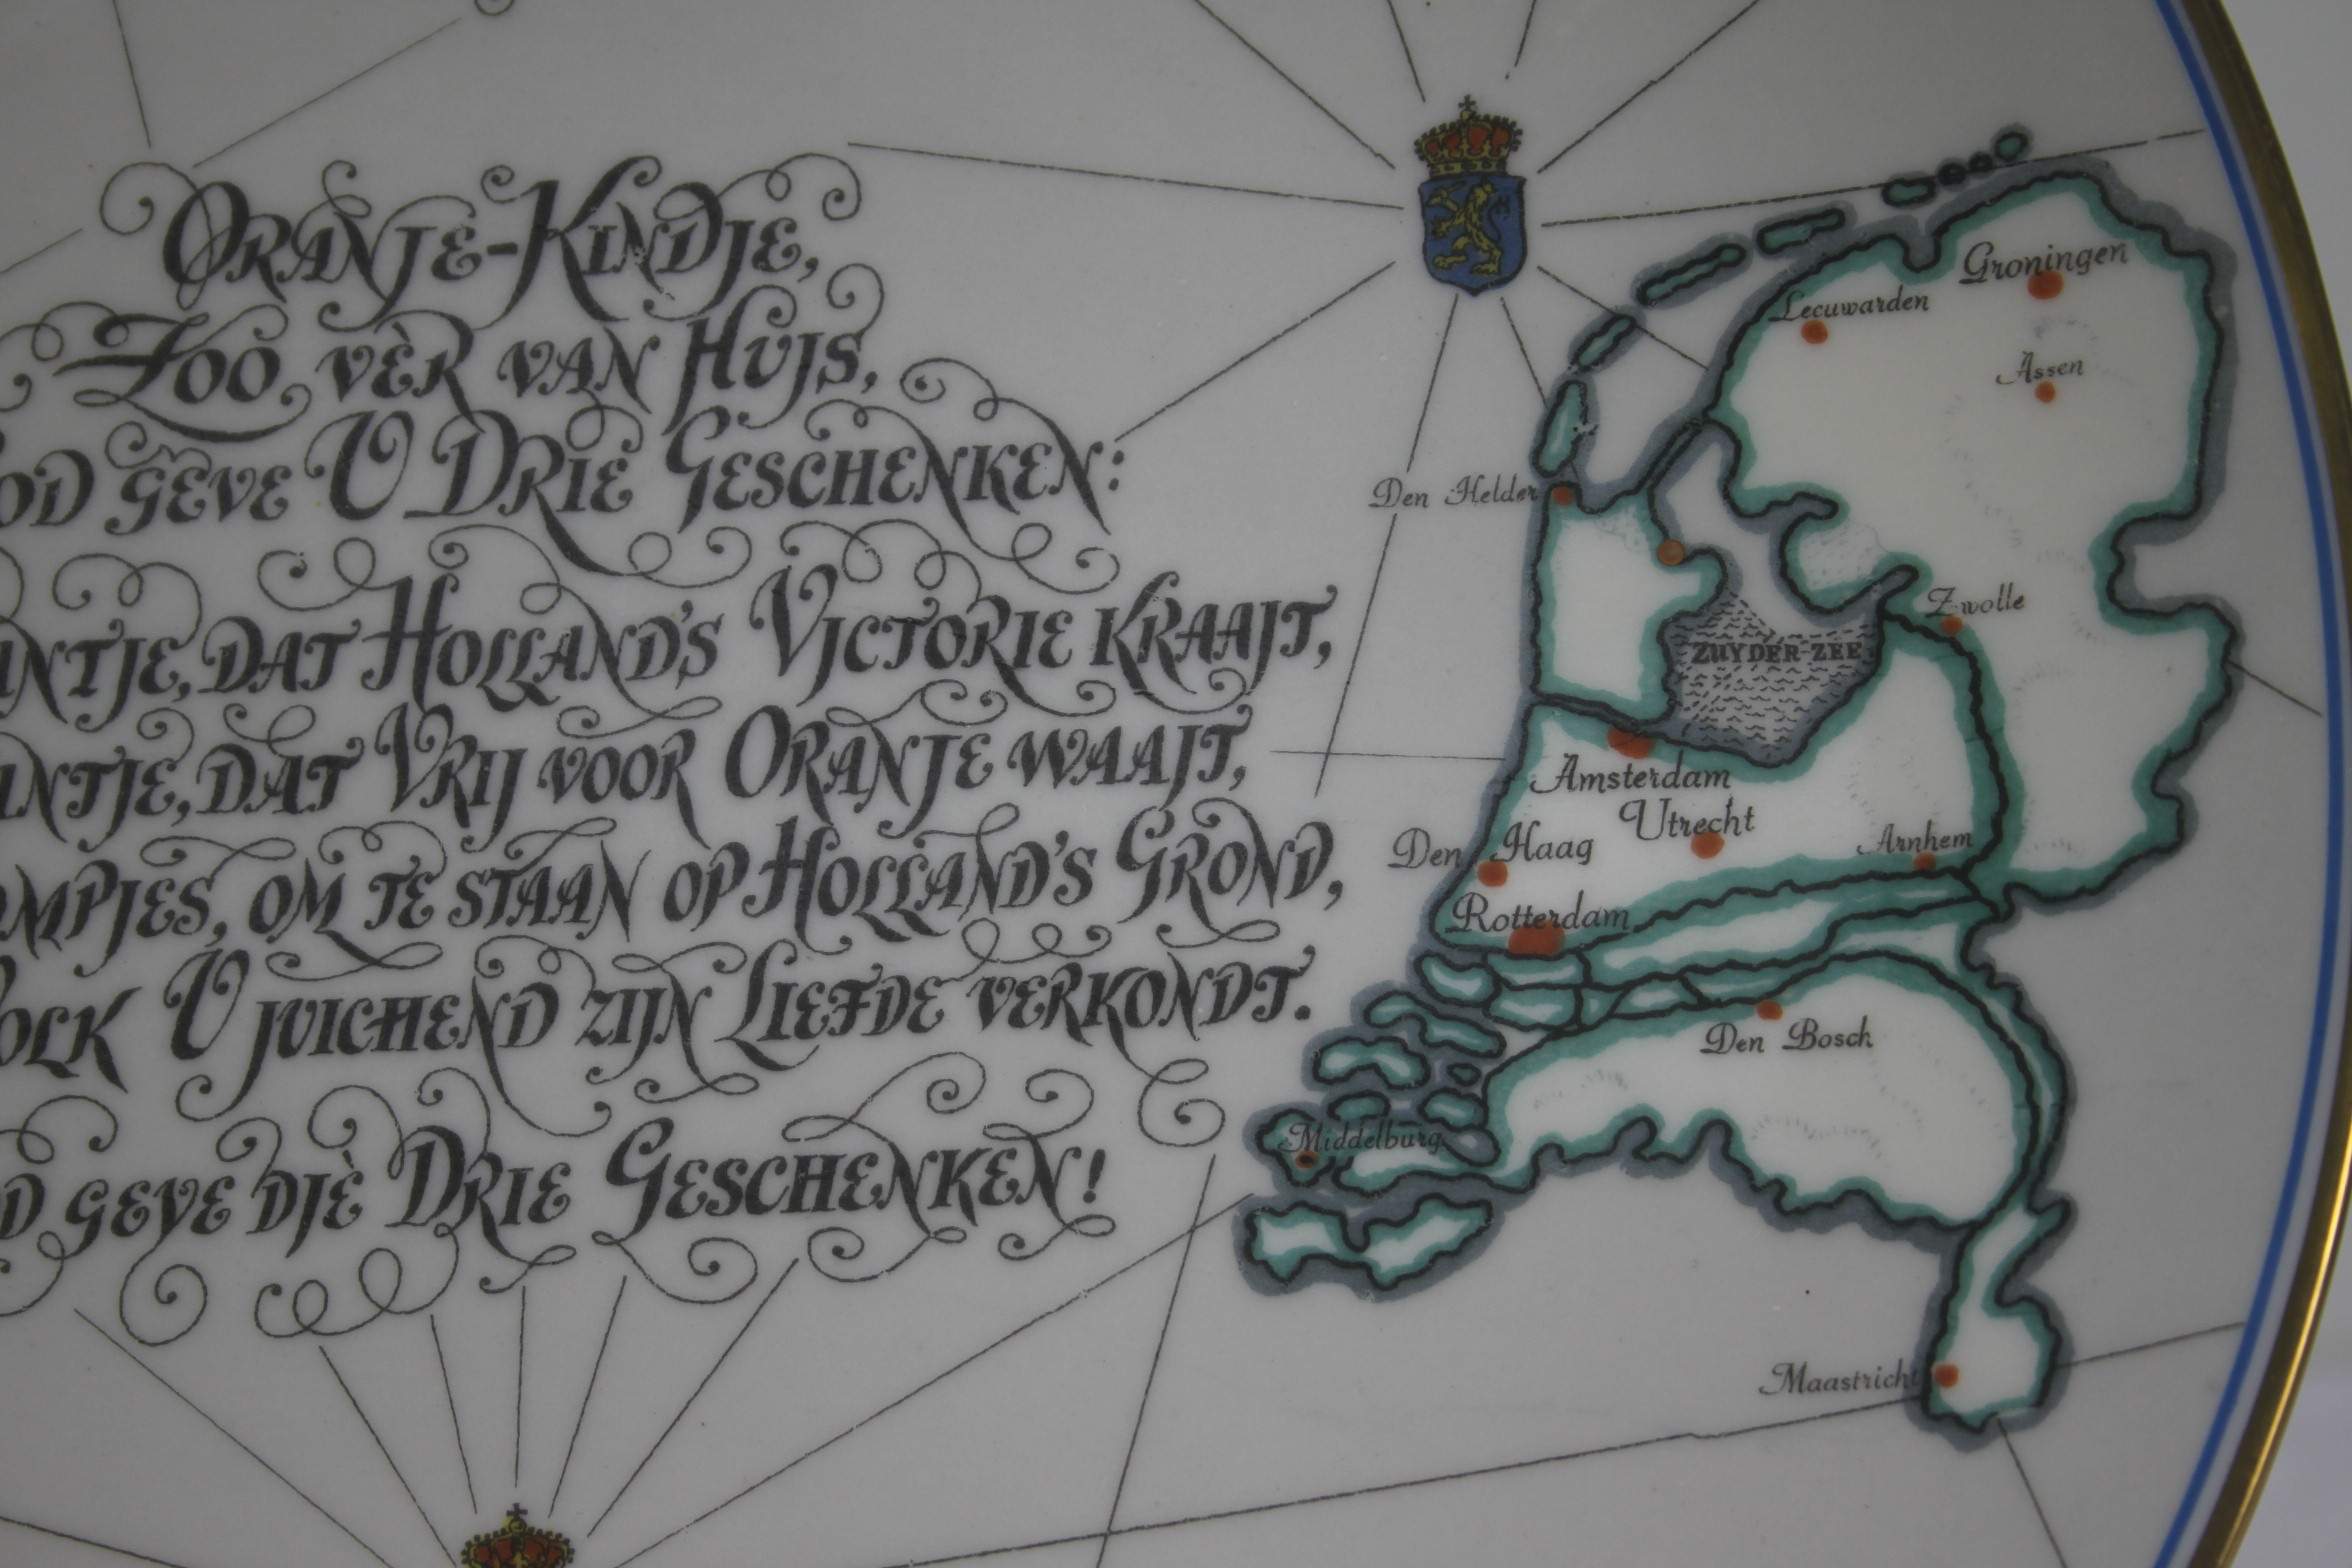 ORANJE-KINDJE,
ZOO VÈR VAN HUJS,
GEVE U DRIE GESCHENKEN:
DAT HOLLAND'S VJCTORIE KRAAJT,
DAT VRIJ VOOR ORANJE WAAJT,
OM TE STAAN OP HOLLAND'S GROND,
U JUICHEND ZIJN LIEFDE VERKONDT.
GEVE DJÈ DRIE GESCHENKEN!
Groningen
Leeuwarden
Assen
Den Helder
Zwolle
ZUYDER-ZEE
Amsterdam
Utrecht
Den Haag
Arnhem
Rotterdam
Den Bosch
Middelburg
Maastricht